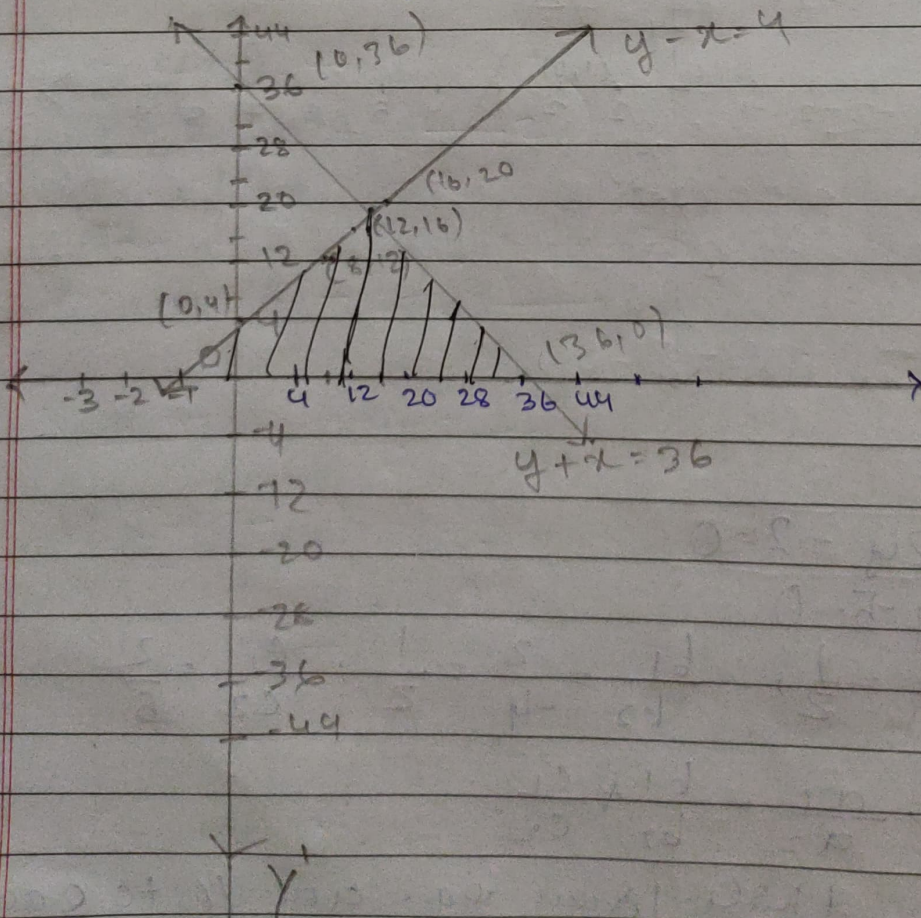 44
(0,36)
y - x = 4
36
28
(16,20
20
(12,16)
12
(8,12)
(0,4)
4
(36,0)
0
-3 -2 4 12 20 28 36 44
-4
y + x = 36
-12
-20
-36
-44
Y